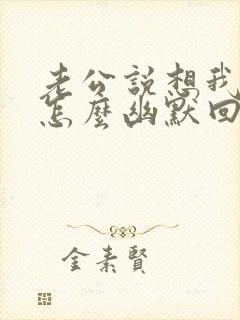 老公說想我
怎麼幽默回
金素賢